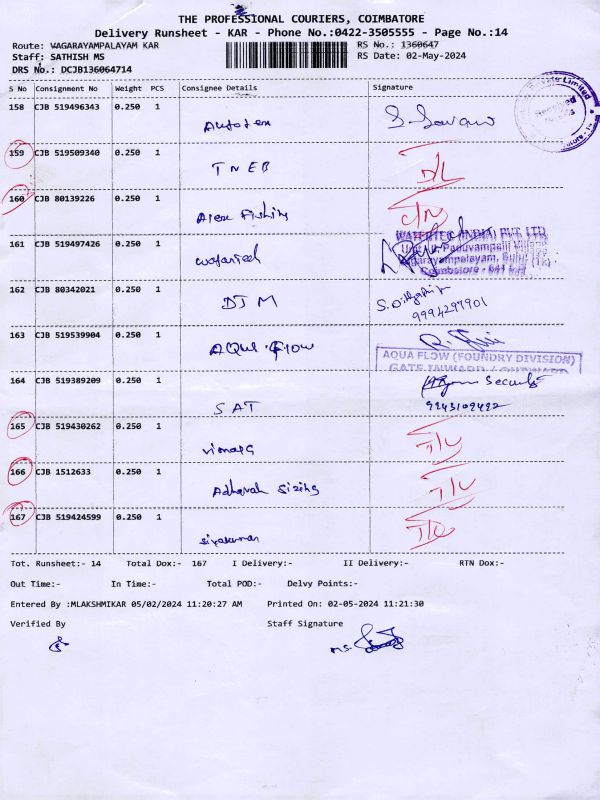 THE PROFESSIONAL COURIERS, COIMBATORE
Delivery Runsheet - KAR - Phone No.:0422-3505555 - Page No.:14
Route: VAGARAYAMPALAYAM KAR RS No.: 1360647
Staff: SATHISH MS RS Date: 02-May-2024
DRS No.: DCJB136064714
S No Consignment No Weight PCS Consignee Details Signature
158 CJB 519496343 0.250 1
Autotex
159 CJB 519509340 0.250 1
TNEB D/L
160 CJB 80139226 0.250 1
Alex Fishing
161 CJB 519497426 0.250 1
WATERTEC (INDIA) PVT LTD
Coimbatore - 641
162 CJB 80342021 0.250 1
DJM
9994297901
163 CJB 519539904 0.250 1
AQua Flow
AQUA FLOW (FOUNDRY DIVISION)
GATE INWARD / OUTWARD
164 CJB 519389209 0.250 1
SAT Security
9943109492
165 CJB 519430262 0.250 1
vimala
166 CJB 1512633 0.250 1
Adhavah Sizing
167 CJB 519424599 0.250 1
Sivakumar
Tot. Runsheet:- 14 Total Dox:- 167 I Delivery:- II Delivery:- RTN Dox:-
Out Time:- In Time:- Total POD:- Delvy Points:-
Entered By :MLAKSHMIKAR 05/02/2024 11:20:27 AM Printed On: 02-05-2024 11:21:30
Verified By Staff Signature